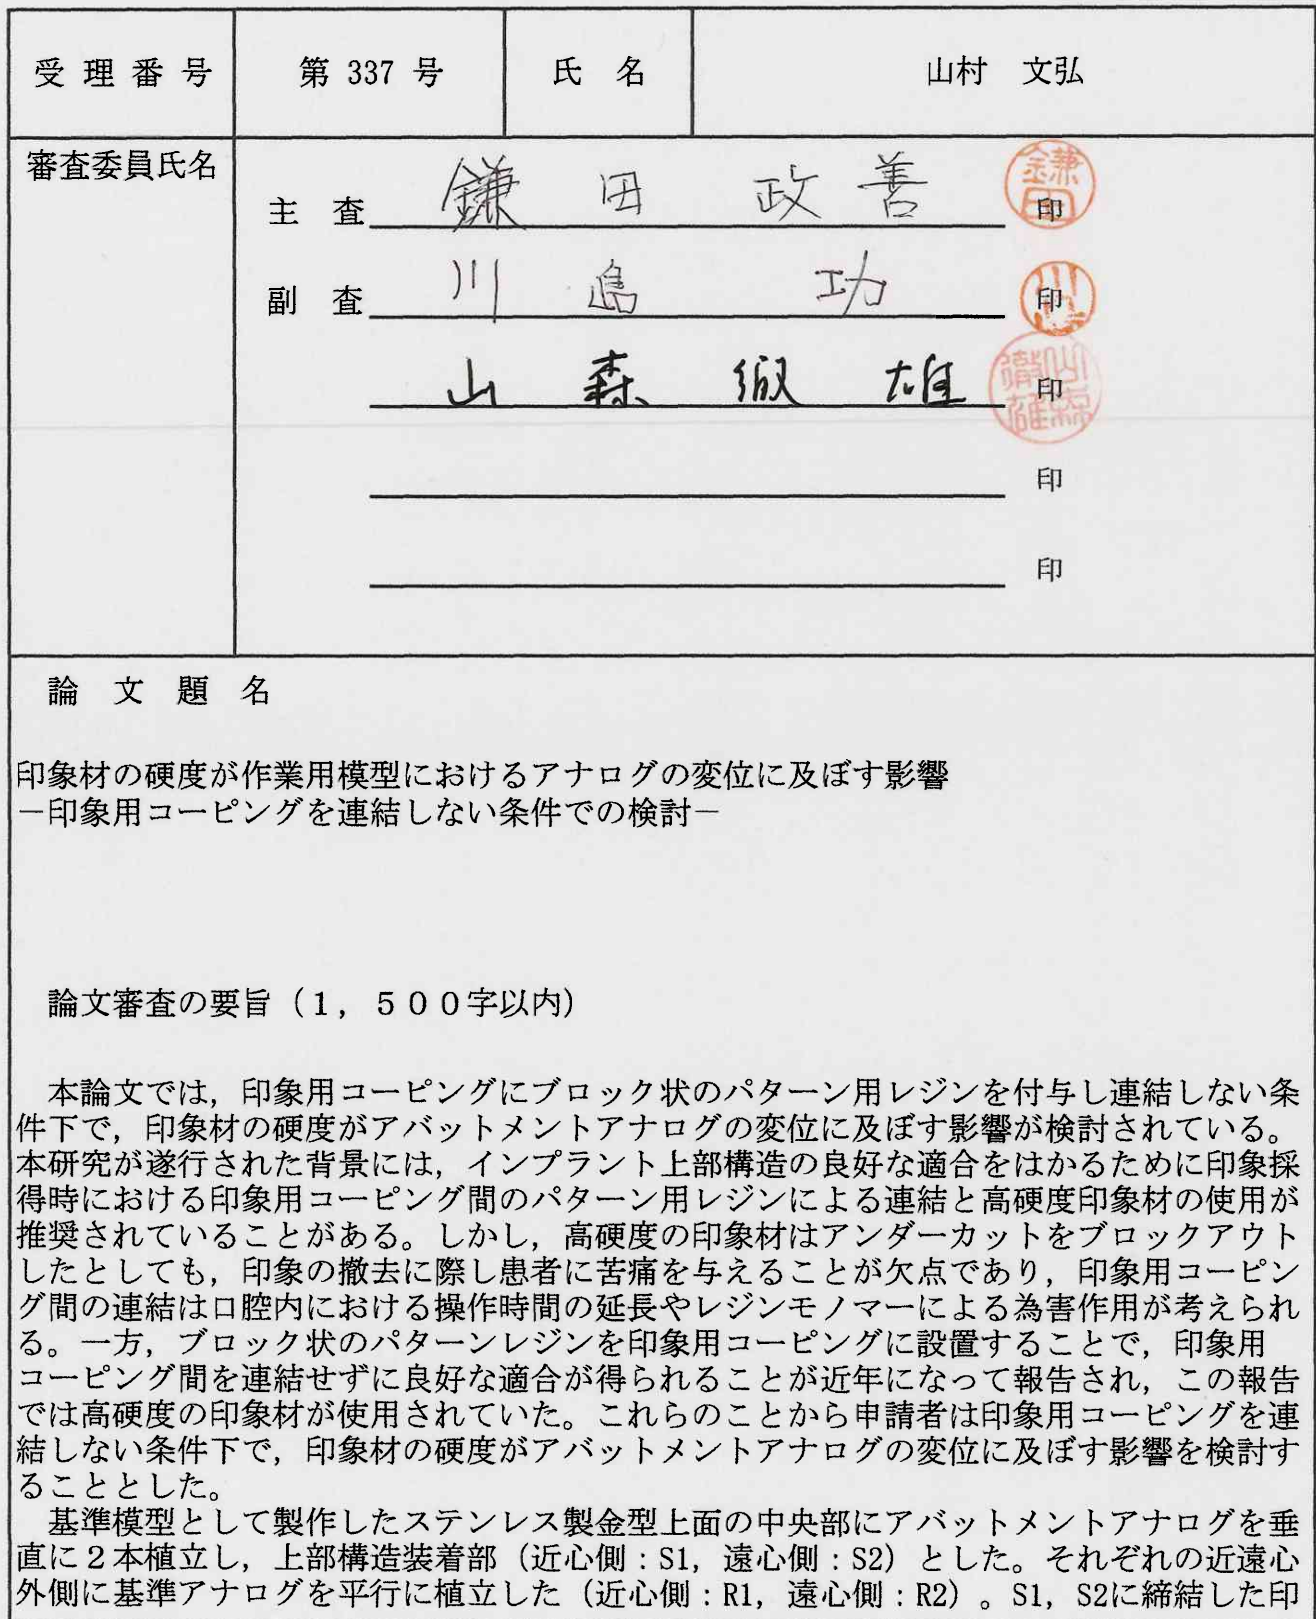 受理番号 第 337 号 氏 名 山村 文弘
審査委員氏名
主 査 鎌田 政善 印
副 査 川島 功 印
山森 徹雄 印
印
印
論 文 題 名
印象材の硬度が作業用模型におけるアナログの変位に及ぼす影響
－印象用コーピングを連結しない条件での検討－
論文審査の要旨（１，５００字以内）
本論文では，印象用コーピングにブロック状のパターン用レジンを付与し連結しない条
件下で，印象材の硬度がアバットメントアナログの変位に及ぼす影響が検討されている。
本研究が遂行された背景には，インプラント上部構造の良好な適合をはかるために印象採
得時における印象用コーピング間のパターン用レジンによる連結と高硬度印象材の使用が
推奨されていることがある。しかし，高硬度の印象材はアンダーカットをブロックアウト
したとしても，印象の撤去に際し患者に苦痛を与えることが欠点であり，印象用コーピン
グ間の連結は口腔内における操作時間の延長やレジンモノマーによる為害作用が考えられ
る。一方，ブロック状のパターンレジンを印象用コーピングに設置することで，印象用
コーピング間を連結せずに良好な適合が得られることが近年になって報告され，この報告
では高硬度の印象材が使用されていた。これらのことから申請者は印象用コーピングを連
結しない条件下で，印象材の硬度がアバットメントアナログの変位に及ぼす影響を検討す
ることとした。
基準模型として製作したステンレス製金型上面の中央部にアバットメントアナログを垂
直に２本植立し，上部構造装着部（近心側：S1，遠心側：S2）とした。それぞれの近遠心
外側に基準アナログを平行に植立した（近心側：R1，遠心側：R2）。S1，S2に締結した印